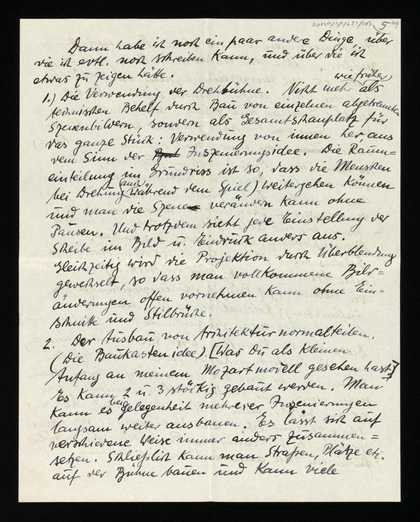 Dann habe ich noch ein paar andere Dinge über
die ich evtl. noch schreiben kann, und über die ich
etwas zu zeigen hätte.
wie früher,
1.) Die Verwendung der Drehbühne. Nicht mehr als
technischen Behelf durch Bau von einzelnen abgetrennten
Szenenbildern, sondern als Gesamtschauplatz für
das ganze Stück. Verwendung von innen her aus
dem Sinn der Inszenierungsidee. Die Raum=
einteilung im Grundriss ist so, dass die Menschen
bei Drehung (auch während dem Spiel) weitergehen können
und man die Szene verändern kann ohne
Pausen. Und trotzdem sieht jede Einstellung der
Scheibe im Bild u. Eindruck anders aus.
Gleichzeitig wird die Projektion durch Überblendung
gewechselt, so dass man vollkommene Bild=
änderungen offen vornehmen kann ohne Ein=
schnitte und Stilbrüche.
2. Der Ausbau von Architekturnormalteilen.
(Die Baukastenidee) [Was Du als kleinen
Anfang an meinem Mozartmodell gesehen hast]
Es kann 2 u. 3 stöckig gebaut werden. Man
kann es bei Gelegenheit mehrerer Inszenierungen
langsam weiter ausbauen. Es lässt sich auf
verschiedene Weise immer anders zusammen=
setzen. Schliesslich kann man Strassen, Plätze etc.
auf der Bühne bauen und kann viele